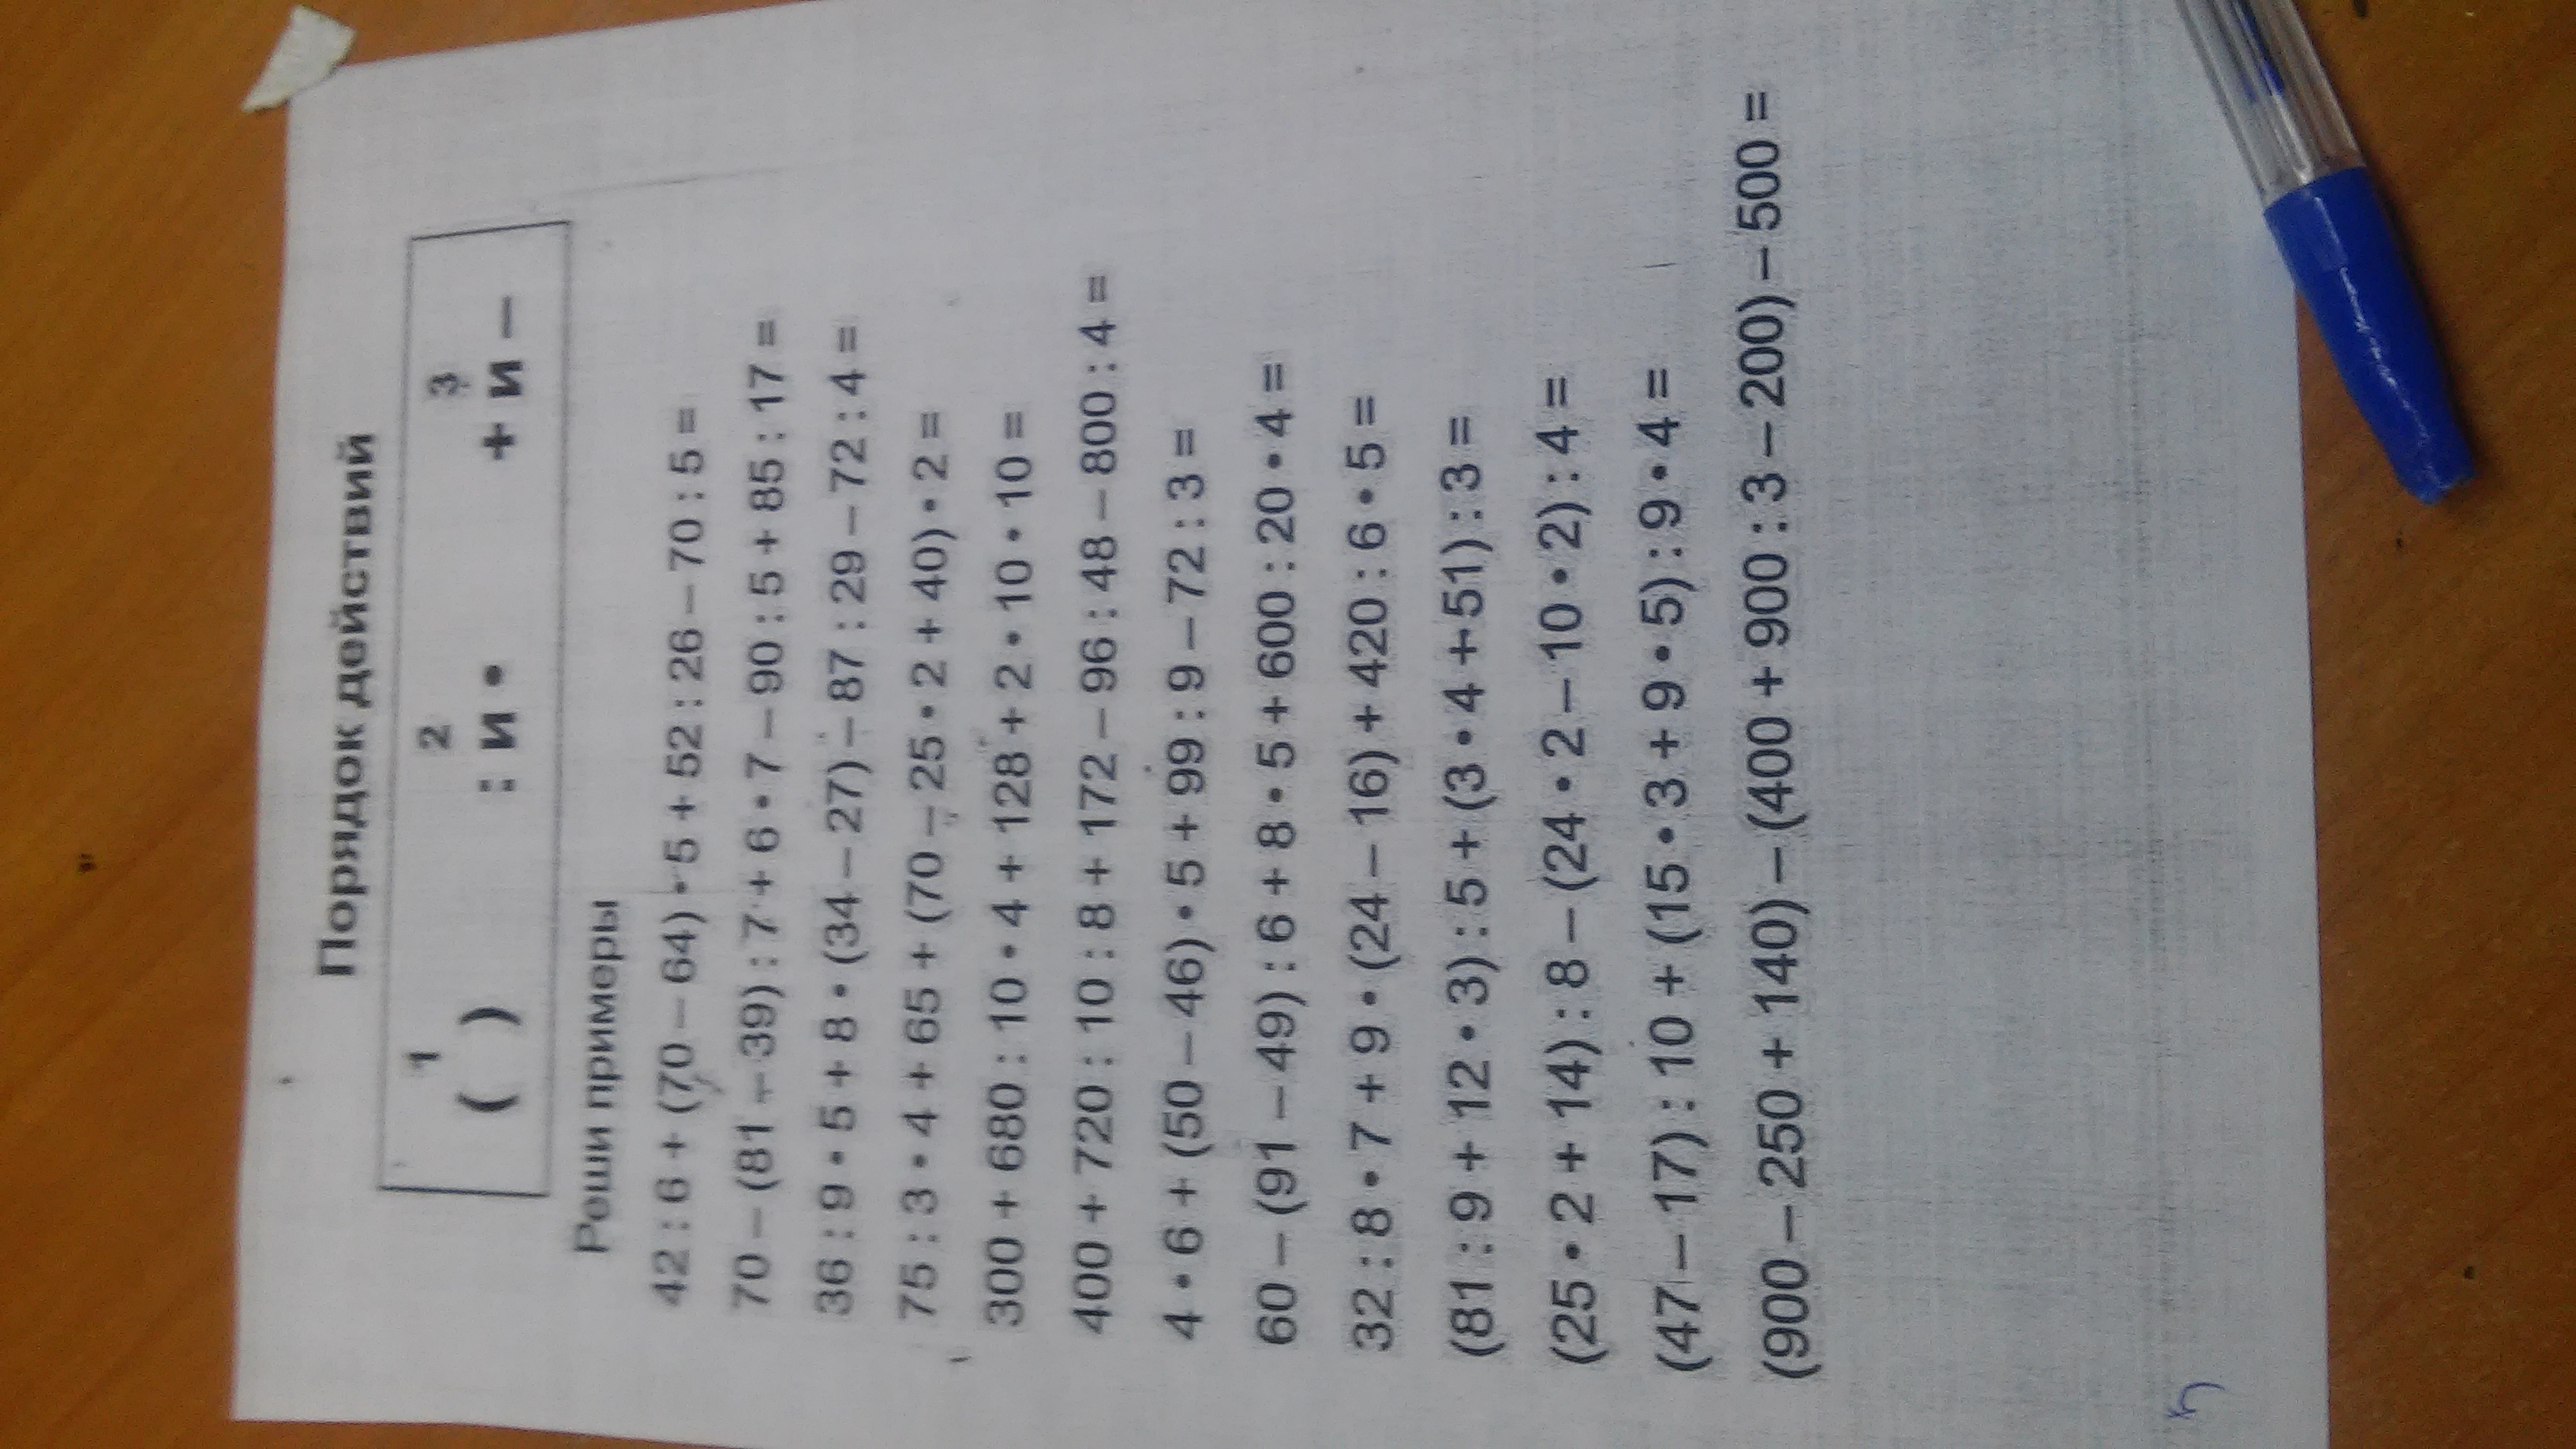 Порядок действий
1 2 3
( ) : и • + и −
Реши примеры
42 : 6 + (70 − 64) • 5 + 52 : 26 − 70 : 5 =
70 − (81 − 39) : 7 + 6 • 7 − 90 : 5 + 85 : 17 =
36 : 9 • 5 + 8 • (34 − 27) − 87 : 29 − 72 : 4 =
75 : 3 • 4 + 65 + (70 − 25 • 2 + 40) • 2 =
300 + 680 : 10 • 4 + 128 + 2 • 10 • 10 =
400 + 720 : 10 : 8 + 172 − 96 : 48 − 800 : 4 =
4 • 6 + (50 − 46) • 5 + 99 : 9 − 72 : 3 =
60 − (91 − 49) : 6 + 8 • 5 + 600 : 20 • 4 =
32 : 8 • 7 + 9 • (24 − 16) + 420 : 6 • 5 =
(81 : 9 + 12 • 3) : 5 + (3 • 4 + 51) : 3 =
(25 • 2 + 14) : 8 − (24 • 2 − 10 • 2) : 4 =
(47 − 17) : 10 + (15 • 3 + 9 • 5) : 9 • 4 =
(900 − 250 + 140) − (400 + 900 : 3 − 200) − 500 =